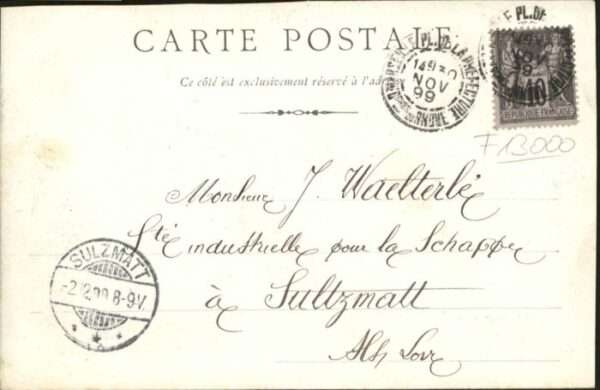 CARTE POSTALE
Ce côté est exclusivement réservé à l'adr
PL. DE LA PRÉFECTURE
NOV
99
RHONE
PL. DE
10
F 13000
Monsieur J. Waelterlé
Sté industrielle pour la Schappe
à Sultzmatt
Als Lorr
SULZMATT
-2.12.99. 8-9V.